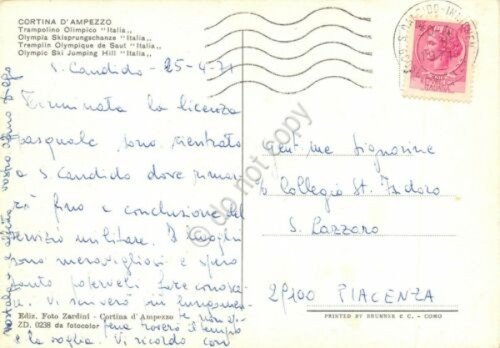 CORTINA D'AMPEZZO
Trampolino Olimpico "Italia"
Olympia Skisprungschanze "Italia"
Tremplin Olympique de Saut "Italia"
Olympic Ski Jumping Hill "Italia"
S. Candido - 25-4-71
Terminata la licenza
pasquale sono rientrato
a S. Candido dove rimar
rò fino a conclusione del
servizio militare. I luoghi
sono meravigliosi e spero
tanto poterveli fare conosce
re. Vi scriverò più lungamen
te non
appena troverò il tempo
e la voglia. Vi ricordo con
nostalgia e affetto, vostro
Gent.me Signorine
c/o Collegio St. Isidoro
S. Lazzaro
29100 PIACENZA
Ediz. Foto Zardini - Cortina d'Ampezzo
ZD. 0238 da fotocolor
PRINTED BY BRUNNER & C. - COMO
© do not copy